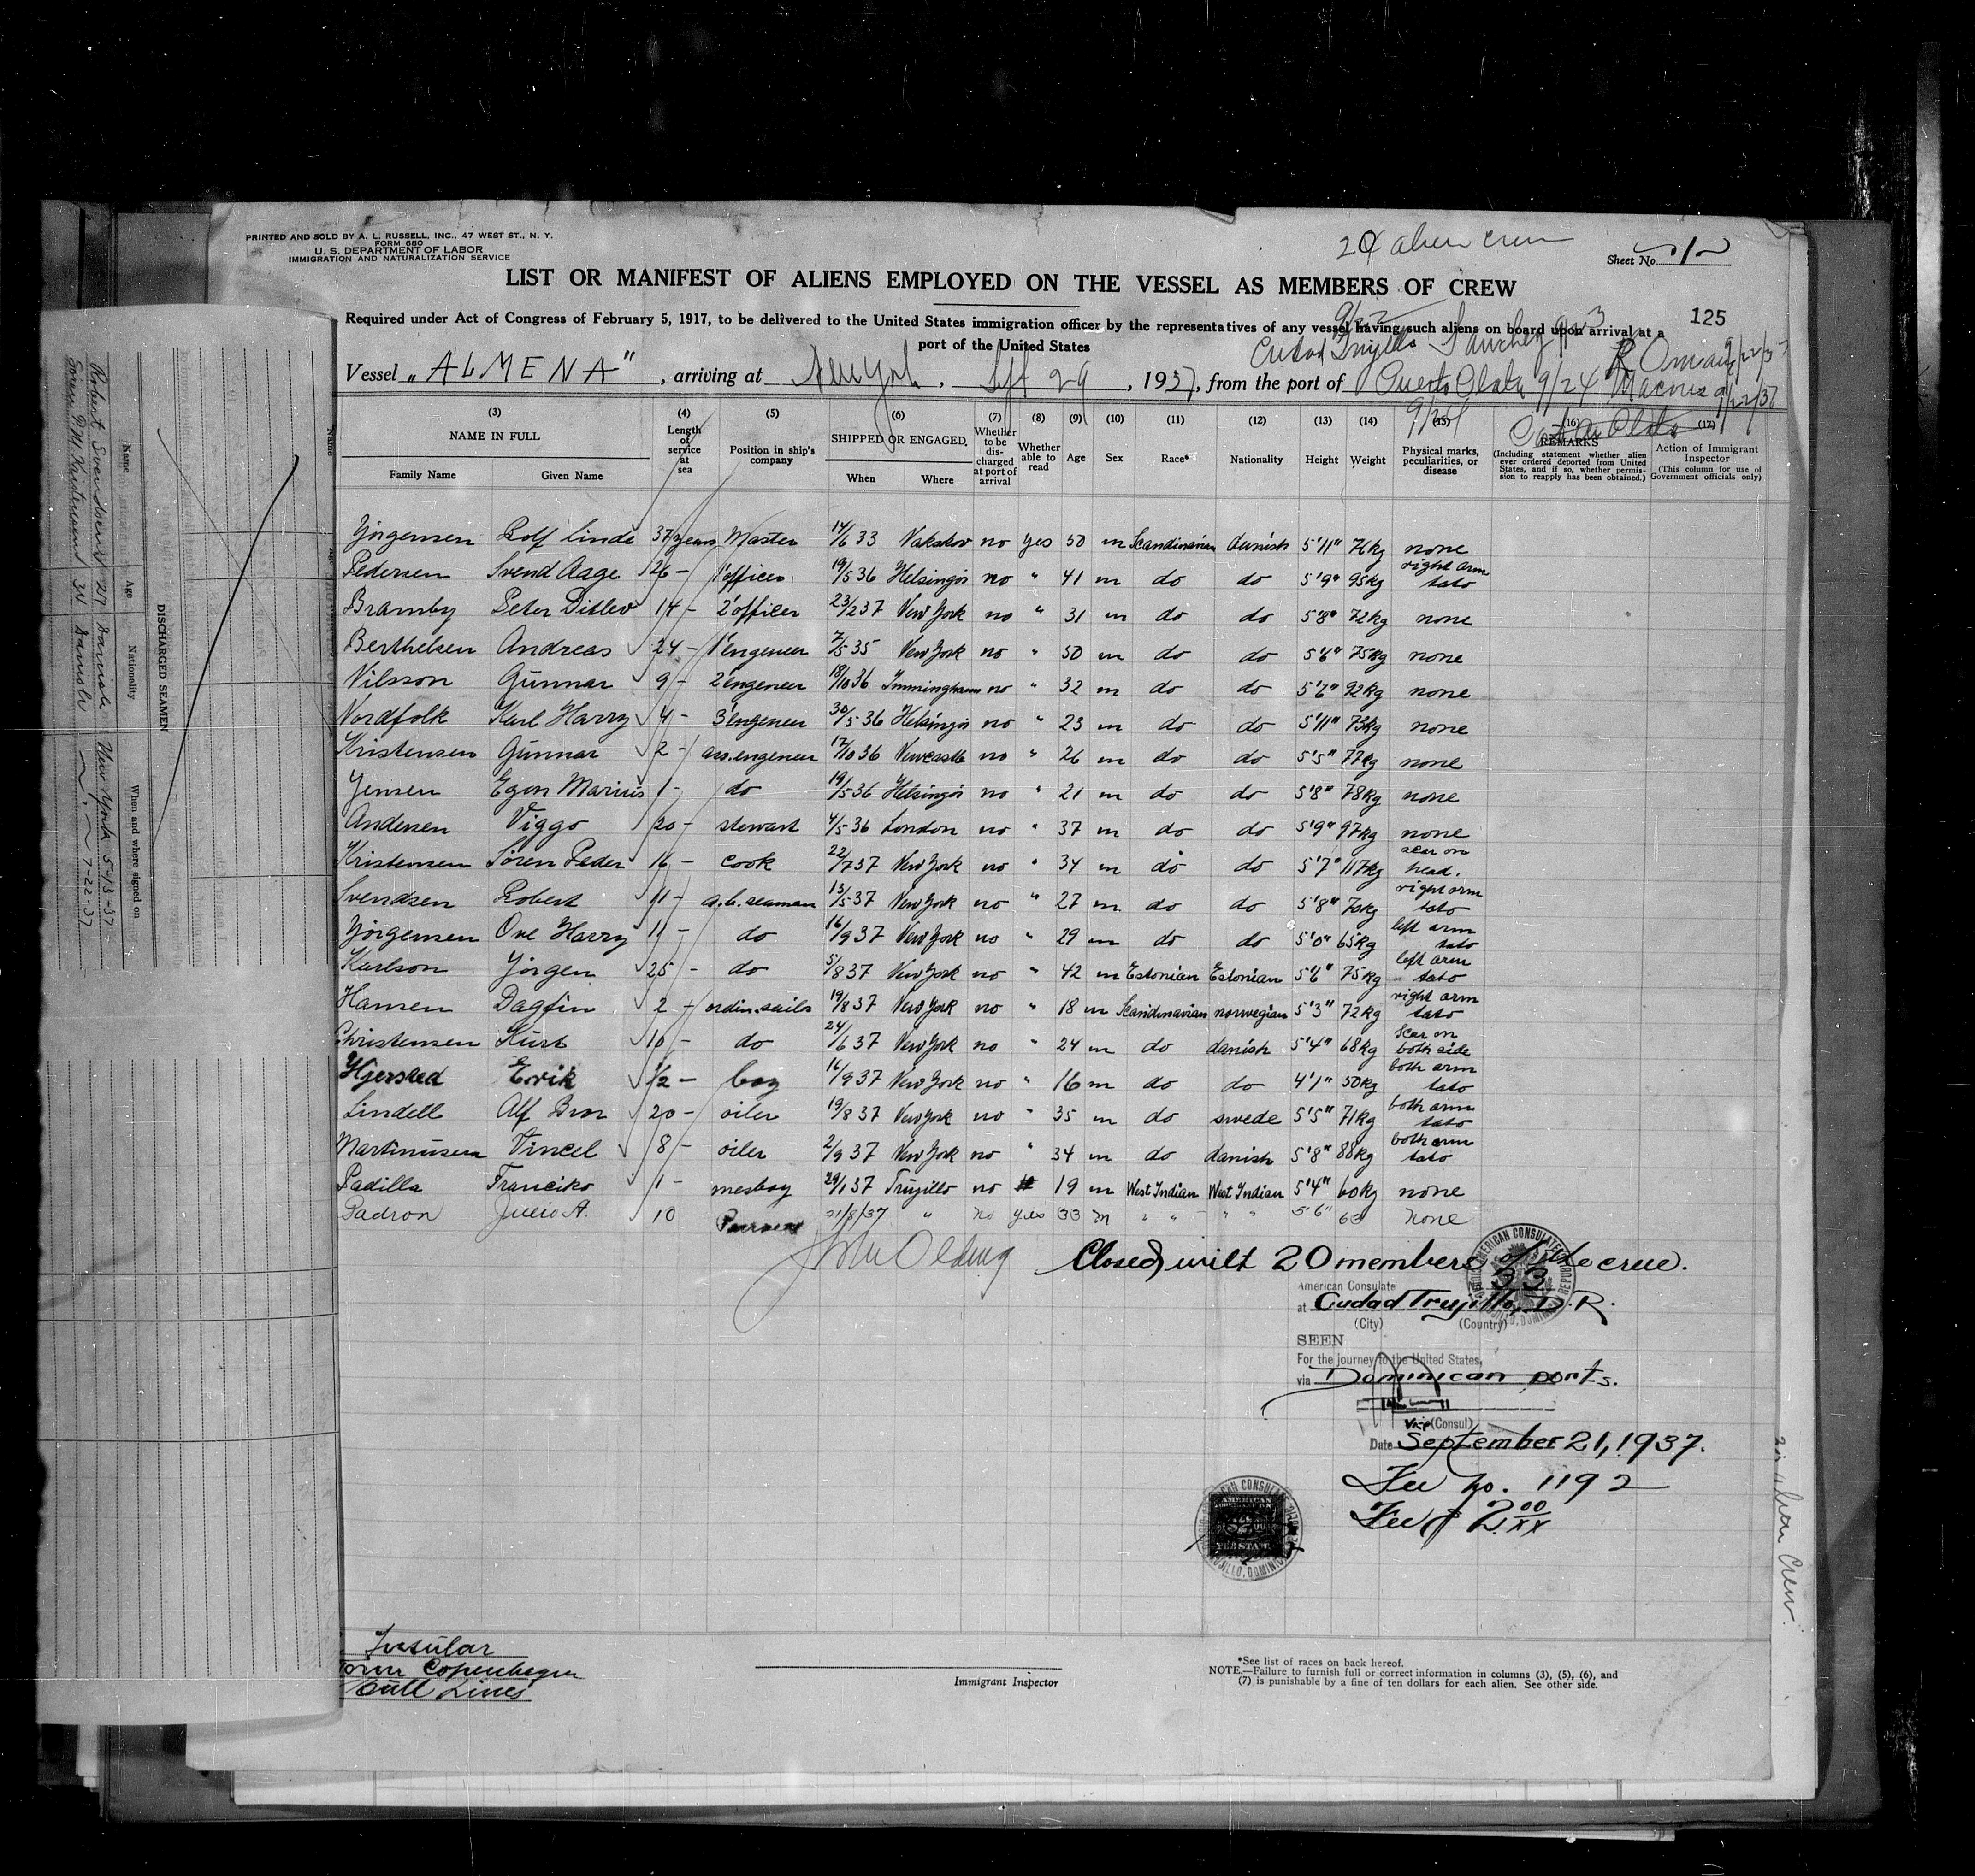 PRINTED AND SOLD BY A. L. RUSSELL, INC., 47 WEST ST., N. Y.
FORM 680
U. S. DEPARTMENT OF LABOR
IMMIGRATION AND NATURALIZATION SERVICE
20 alien crew
Sheet No. 1
LIST OR MANIFEST OF ALIENS EMPLOYED ON THE VESSEL AS MEMBERS OF CREW
125
Required under Act of Congress of February 5, 1917, to be delivered to the United States immigration officer by the representatives of any vessel having such aliens on board upon arrival at a
port of the United States
Cudad Trujillo Sanchez 9/23
R Omana 9/22/37
Vessel „ALMENA", arriving at New York, Sept 29, 1937, from the port of Puerto Plata 9/24 Macoris 9/22/37
(3) (4) (5) (6) (7) (8) (9) (10) (11) (12) (13) (14) (15) (16) (17)
NAME IN FULL
Family Name Given Name
Length of service at sea
Position in ship's company
SHIPPED OR ENGAGED,
When Where
Whether to be discharged at port of arrival
Whether able to read
Age
Sex
Race*
Nationality
Height
Weight
Physical marks, peculiarities, or disease
REMARKS
(Including statement whether alien ever ordered deported from United States, and if so, whether permission to reapply has been obtained.)
Action of Immigrant Inspector
(This column for use of Government officials only)
Jörgensen Rolf Linde 37 years Master 14/6 33 Nakskov no yes 50 m Scandinavian danish 5'11" 76kg none
Pedersen Svend Aage 26 - 1'officer 19/5 36 Helsingör no " 41 m do do 5'9" 95kg right arm tato
Bramby Peter Ditlev 14 - 2'officer 23/2 37 New York no " 31 m do do 5'8" 72kg none
Berthelsen Andreas 24 - 1'engeneer 7/5 35 New York no " 50 m do do 5'6" 75kg none
Nilsson Gunnar 9 - 2'engeneer 18/10 36 Immingham no " 32 m do do 5'7" 92kg none
Nordfolk Karl Harry 4 - 3'engeneer 30/5 36 Helsingör no " 23 m do do 5'11" 73kg none
Kristensen Gunnar 2 - ass.engeneer 17/10 36 Newcastle no " 26 m do do 5'5" 77kg none
Jensen Egon Marius 1 - do 19/5 36 Helsingör no " 21 m do do 5'8" 78kg none
Andersen Viggo 20 - stewart 4/5 36 London no " 37 m do do 5'9" 97kg none
Kristensen Sören Peder 16 - cook 22/7 37 New York no " 34 m do do 5'7" 117kg scar on head.
Svendsen Robert 11 - a.b. seaman 13/5 37 New York no " 27 m do do 5'8" 70kg right arm tato
Jörgensen Ove Harry 11 - do 16/9 37 New York no " 29 m do do 5'0" 65kg left arm tato
Karlson Jörgen 25 - do 5/8 37 New York no " 42 m Estonian Estonian 5'6" 75kg left arm tato
Hansen Dagfin 2 - ordin.sails 19/8 37 New York no " 18 m Scandinavian norwegian 5'3" 72kg right arm tato
Christensen Kurt 10 - do 24/6 37 New York no " 24 m do danish 5'4" 68kg scar on both side
Hjersted Erik 1/2 - boy 16/9 37 New York no " 16 m do do 4'1" 50kg both arm tato
Lindell Alf Bror 20 - oiler 19/8 37 New York no " 35 m do swede 5'5" 71kg both arm tato
Martinusen Vincel 8 - oiler 2/9 37 New York no " 34 m do danish 5'8" 88kg both arm tato
Padilla Francisko 1 - mesboy 29/1 37 Trujillo no 19 m West Indian West Indian 5'4" 60kg none
Padron Julio A. 10 21/8/37 " no yes 33 m " " " " 5'6" 63 none
Closed with 20 members of the crew.
AMERICAN CONSULATE
33
American Consulate
at Cudad Trujillo, D. R.
(City) (Country)
SEEN
For the journey to the United States,
via Dominican ports.
Vice (Consul)
Date September 21, 1937.
Fee No. 1192
Fee $ 2.00/xx
AMERICAN
FEE STAMP
Insular
Torm Copenhagen
Bull Lines
Immigrant Inspector
*See list of races on back hereof.
NOTE.—Failure to furnish full or correct information in columns (3), (5), (6), and
(7) is punishable by a fine of ten dollars for each alien. See other side.
20 alien Crew.
DISCHARGED SEAMEN
Name Age Nationality When and where signed on
Robert Svendsen 27 Danish New York 5-13-37
Soren P. M. Kristensen 34 Danish 7-22-37